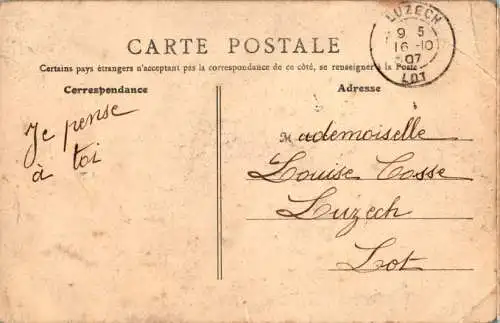 LUZECH
9 5
16 -10
07
LOT
CARTE POSTALE
Certains pays étrangers n'acceptant pas la correspondance de ce côté, se renseigner à la Poste
Correspondance
Adresse
Je pense
à toi
Mademoiselle
Louise Cosse
Luzech
Lot